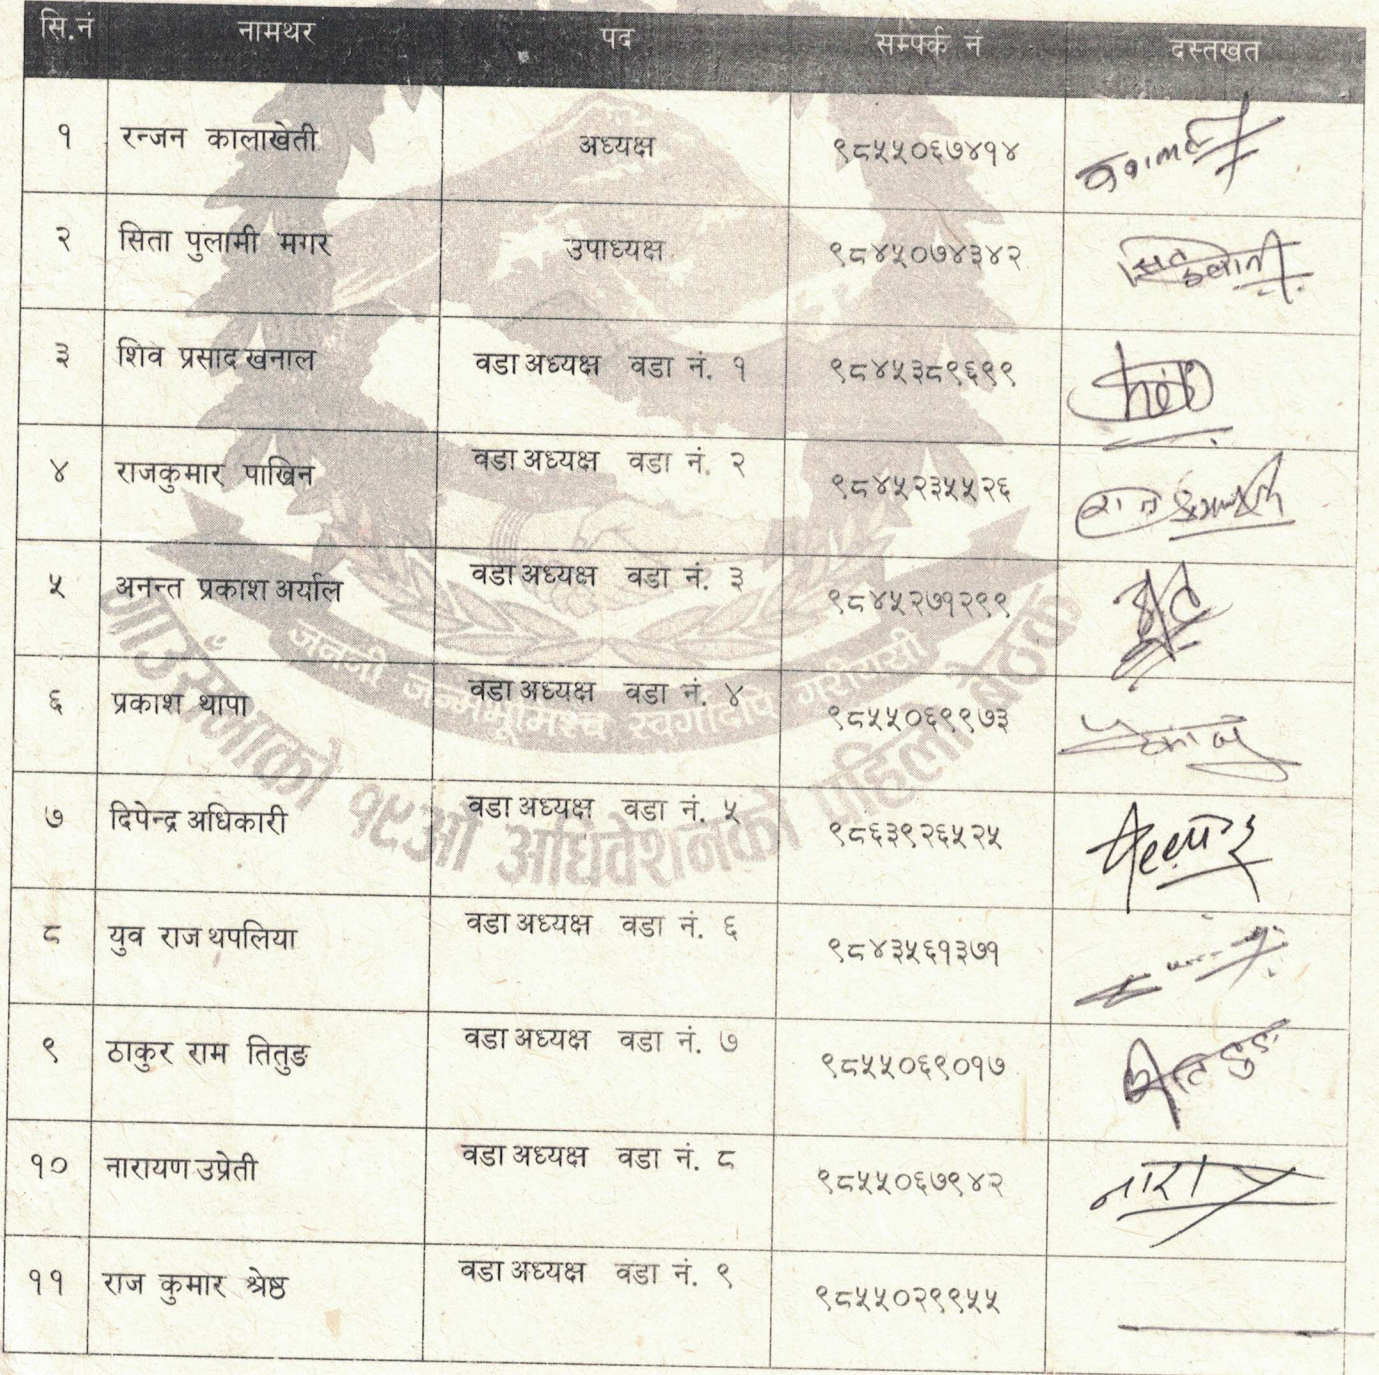 सि.नं नामथर पद सम्पर्क नं दस्तखत
१ रन्जन कालाखेती अध्यक्ष ९८५५०६७४१४
२ सिता पुलामी मगर उपाध्यक्ष ९८४५०७४३४२
३ शिव प्रसाद खनाल वडा अध्यक्ष वडा नं. १ ९८४५३८९६९९
४ राजकुमार पाखिन वडा अध्यक्ष वडा नं. २ ९८४५२३५५२६
५ अनन्त प्रकाश अर्याल वडा अध्यक्ष वडा नं. ३ ९८४५२७१२९९
६ प्रकाश थापा वडा अध्यक्ष वडा नं. ४ ९८५५०६९९७३
७ दिपेन्द्र अधिकारी वडा अध्यक्ष वडा नं. ५ ९८६३९२६५२५
८ युव राज थपलिया वडा अध्यक्ष वडा नं. ६ ९८४३५६१३७१
९ ठाकुर राम तितुङ वडा अध्यक्ष वडा नं. ७ ९८५५०६९०१७
१० नारायण उप्रेती वडा अध्यक्ष वडा नं. ८ ९८५५०६७९४२
११ राज कुमार श्रेष्ठ वडा अध्यक्ष वडा नं. ९ ९८५५०२९९५५
जननी जन्मभूमिश्च स्वर्गादपि गरीयसी
गाउँसभाको १५औं अधिवेशनको पहिलो बैठक